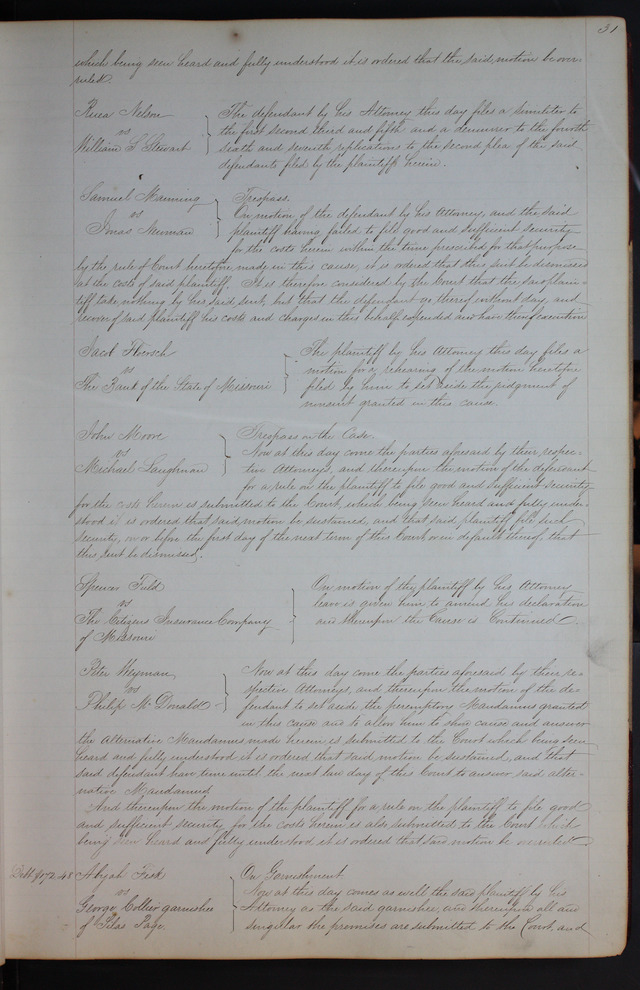 31
which being seen heard and fully understood it is ordered that the said motion be over-
ruled.
Nelson
vs
William S Stewart
The defendant by his Attorney this day files a Similiter to
the first second third and fifth and a demurrer to the fourth
sixth and seventh replications to the second plea of the said
defendants filed by the plaintiffs herein.
Samuel Manning
vs
Jonas Newman
Trespass
On motion of the defendant by his Attorney, and the said
plaintiff having failed to file good and sufficient security
for the costs herein within the time prescribed for that purpose
by the rule of Court heretofore made in this cause, it is ordered that this suit be dismissed
at the costs of said plaintiff. It is therefore considered by the Court that the said plain-
tiff take nothing by his said suit, but that the defendant go thereof without day, and
recover of said plaintiff his costs and charges in this behalf expended and have thereof execution
Jacob
vs
The Bank of the State of Missouri
The plaintiff by his Attorney this day files a
motion for a rehearing of the motion heretofore
filed by him to set aside the judgment of
nonsuit granted in this cause.
John Moore
vs
Michael Laughman
Trespass on the Case.
Now at this day come the parties aforesaid by their respec-
tive Attorneys, and thereupon the motion of the defendant
for a rule on the plaintiff to file good and sufficient security
for the costs herein is submitted to the Court, which being seen heard and fully under-
stood it is ordered that said motion be sustained, and that said plaintiff file such
security, on or before the first day of the next term of this Court or in default thereof, that
this suit be dismissed.
Spencer Field
vs
The Citizens Insurance Company
of Missouri
On motion of the plaintiff by his Attorney
leave is given him to amend his declaration
and thereupon the Cause is Continued.
Peter Weyman
vs
Philip McDonald
Now at this day come the parties aforesaid by their re-
spective Attorneys, and thereupon the motion of the de-
fendant to set aside the peremptory Mandamus granted
in this cause and to allow him to show cause and answer
the alternative Mandamus made herein is submitted to the Court which being seen
heard and fully understood it is ordered that said motion be sustained, and that
said defendant have time until the next law day of this Court to answer said alter-
native Mandamus.
And thereupon the motion of the plaintiff for a rule on the plaintiff to file good
and sufficient security for the costs herein is also submitted to the Court which
being seen heard and fully understood it is ordered that said motion be overruled
Debt $172.48
Abijah Fisk
vs
George Collier garnishee
of Silas Page.
On Garnishment
Now at this day comes as well the said plaintiff by his
Attorney as the said garnishee, and thereupon all and
singular the premises are submitted to the Court, and